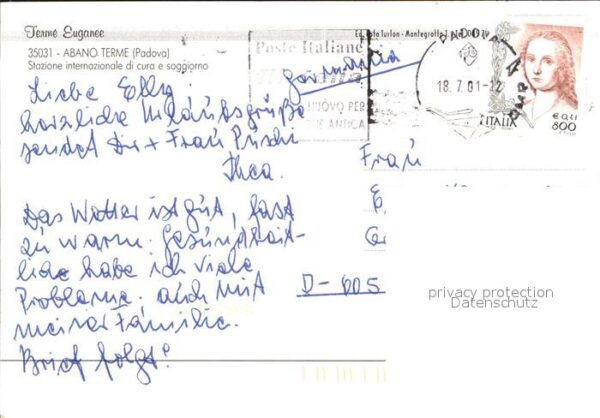 Terme Euganee
35031 - ABANO TERME (Padova)
Stazione internazionale di cura e soggiorno
Poste Italiane
NUOVO PER
ANTICA
PADOVA
18.7.01-12
ITALIA
€ 0,41
800
Liebe Elly!
herzliche Urlaubsgrüße
sendet Dir + Frau
Thea.
Das Wetter ist gut, fast
zu warm. Gesundheit-
liche habe ich viele
Probleme. auch mit
meiner Familie.
Brief folgt!
Germania
Frau
E
D-605
privacy protection
Datenschutz